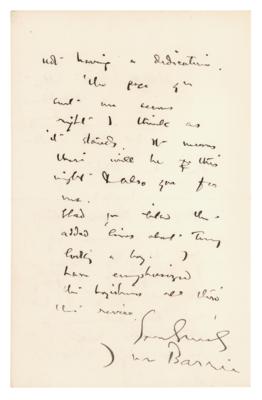 not having a dedication.
The page you
sent me seems
right I think as
it stands. It means
there will be
night & also you for
me.
Glad you like the
added lines about Tony
being a boy. I
have emphasised
the boyishness all thro'
the revise.
J M Barrie